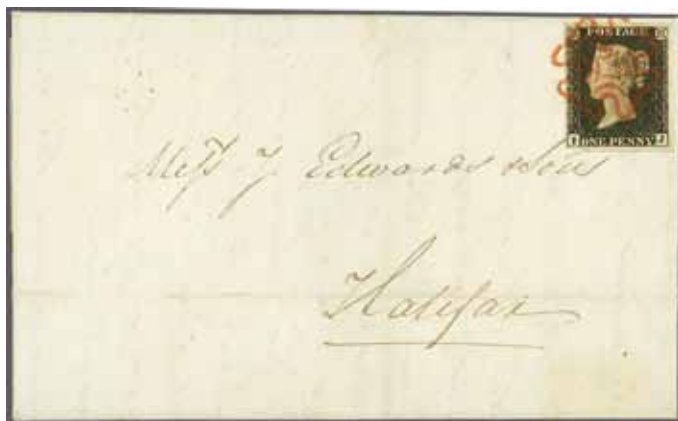 POSTAGE
I ONE PENNY J
Messrs J Edwards & Sons
Halifax